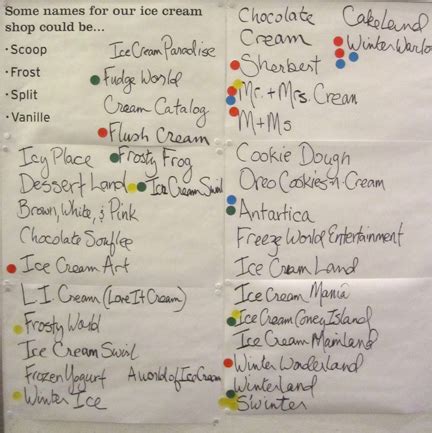 Some names for our ice cream
shop could be...
· Scoop
· Frost
· Split
· Vanille
Ice Cream Paradise
Fudge World
Cream Catalog
Flush Cream
Chocolate
Cream
Sherbert
Mr. + Mrs. Cream
M+Ms
CakeLand
Winter Warlo
Icy Place
Frosty Frog
Dessert Land
Ice Cream Swirl
Brown, White, & Pink
Chocolate Souflee
Ice Cream Art
Cookie Dough
Oreo Cookies-n-Cream
Antartica
Freeze World Entertainment
Ice Cream Land
L.I. Cream (Love It Cream)
Frosty World
Ice Cream Swirl
Frozen Yogurt
A world of Ice Cream
Winter Ice
Ice Cream Mania
Ice Cream Coney Island
Ice Cream Mainland
Winter Wonderland
Winterland
Swinter